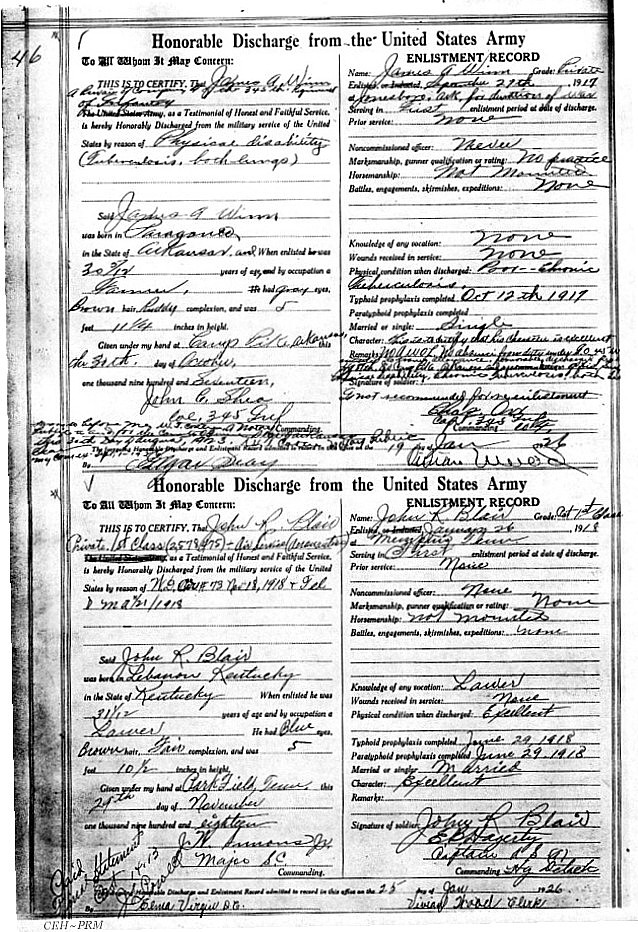 46
Honorable Discharge from the United States Army
To All Whom It May Concern:
THIS IS TO CERTIFY, That James A. Winn
a Private of Company of the 345th Regiment
of Infantry
The United States Army, as a Testimonial of Honest and Faithful Service,
is hereby Honorably Discharged from the military service of the United
States by reason of Physical disability
(Tuberculosis, both lungs)
Said James A Winn
was born in Paragould
in the State of Arkansas, and When enlisted he was
30 3/12 years of age, and by occupation a
Farmer, He had Gray eyes,
Brown hair, Ruddy complexion, and was 5
feet 11 1/4 inches in height.
Given under my hand at Camp Pike, Arkansas, this
the 30th. day of October,
one thousand nine hundred and Seventeen,
John C. Shea
Col, 345 Inf
Commanding.
ENLISTMENT RECORD
Name: James A Winn Grade: Private
Enlisted, or Inducted, September 29th, 1917
at Jonesboro, Ark, for duration of war
Serving in First enlistment period at date of discharge.
Prior service: None
Noncommissioned officer: Never
Marksmanship, gunner qualification or rating: No practice
Horsemanship: Not Mounted
Battles, engagements, skirmishes, expeditions: None
Knowledge of any vocation: None
Wounds received in service: None
Physical condition when discharged: Poor - Chronic
Tuberculosis
Typhoid prophylaxis completed Oct 12th 1917
Paratyphoid prophylaxis completed
Married or single: Single
Character: This is to certify that his character is excellent
Remarks: No AWOL No absence from duty under G.O. 45 W
Signature of soldier:
Not recommended for reenlistment
Capt 345 Inf
Commanding
The foregoing Honorable Discharge and Enlistment Record admitted to record in this office on the 19 day of Jan 1926
By Edgar
Honorable Discharge from the United States Army
To All Whom It May Concern:
THIS IS TO CERTIFY, That John R. Blair
Private 1st Class (2579475) - Air Service (Aeronautics)
The United States Army, as a Testimonial of Honest and Faithful Service,
is hereby Honorably Discharged from the military service of the United
States by reason of W.D. Cir # 73 Nov 18, 1918 & Tel
Said John R. Blair
was born in Lebanon Kentucky
in the State of Kentucky When enlisted he was
31 1/12 years of age and by occupation a
Lawer He had Blue eyes,
Brown hair, Fair complexion, and was 5
feet 10 1/2 inches in height.
Given under my hand at Park Field, Tenn this
29th day of November
one thousand nine hundred and eighteen
Major S.C
Commanding.
ENLISTMENT RECORD
Name: John R. Blair Grade: Pvt 1st Class
Enlisted, or Inducted, January 26 1918
at Memphis Tenn
Serving in First enlistment period at date of discharge.
Prior service: None
Noncommissioned officer: None
Marksmanship, gunner qualification or rating: None
Horsemanship: Not mounted
Battles, engagements, skirmishes, expeditions: None
Knowledge of any vocation: Lawer
Wounds received in service: None
Physical condition when discharged: Excellent
Typhoid prophylaxis completed June 29, 1918
Paratyphoid prophylaxis completed June 29, 1918
Married or single: Married
Character: Excellent
Remarks:
Signature of soldier: John R Blair
E P Hagerty
Captain
Commanding
The foregoing Honorable Discharge and Enlistment Record admitted to record in this office on the 25 day of Jan 1926
By Elma Virgin D.C. Vivian Wood Clerk
CEH~PRM